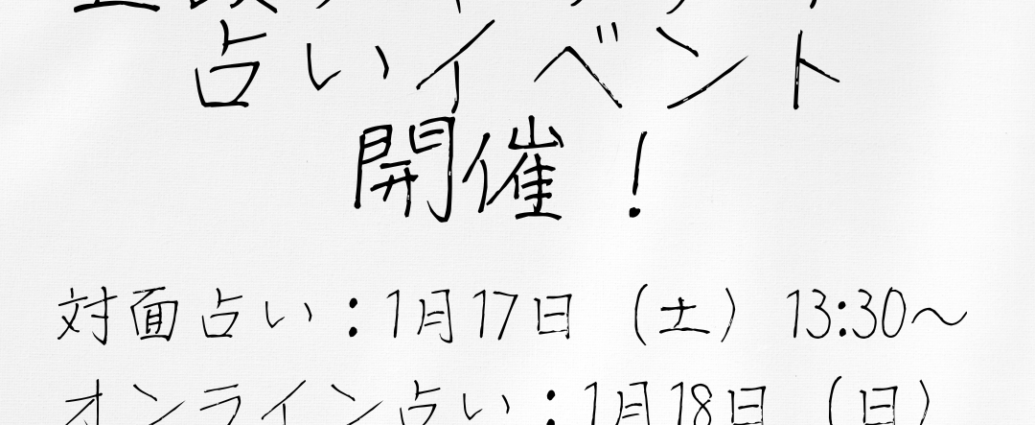 占いイベント
開催！
対面占い：1月17日（土）13:30～
オンライン占い：1月18日（日）